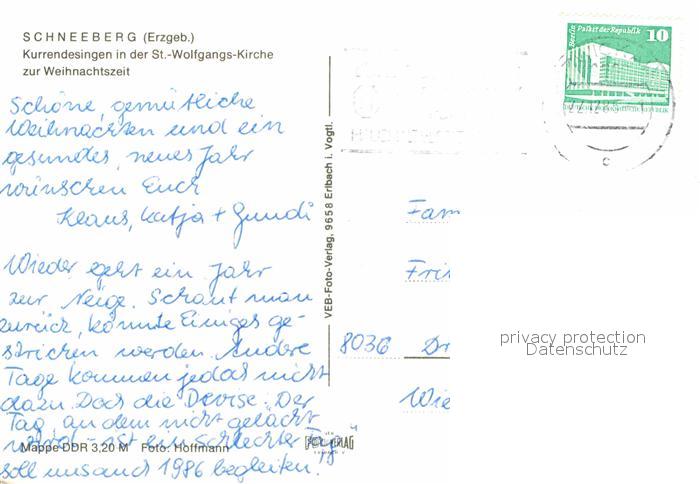 SCHNEEBERG (Erzgeb.)
Kurrendesingen in der St.-Wolfgangs-Kirche
zur Weihnachtszeit
Schöne, gemütliche
Weihnachten und ein
gesundes, neues Jahr
wünschen Euch
Klaus, Katja + Gundi
Wieder geht ein Jahr
zur Neige. Schaut man
zurück, könnte Einiges ge-
strichen werden. Andere
Tage kommen jedoch nicht
dazu. Doch die Devise: „Der
Tag, an dem nicht gelacht
wird – ist ein schlechter Tag"
soll uns auch 1986 begleiten!
Mappe DDR 3,20 M Foto: Hoffmann
VEB-Foto-Verlag, 9658 Erlbach i. Vogtl.
Berlin Palast der Republik
10
c
Fam
8036 Dr
privacy protection
Datenschutz